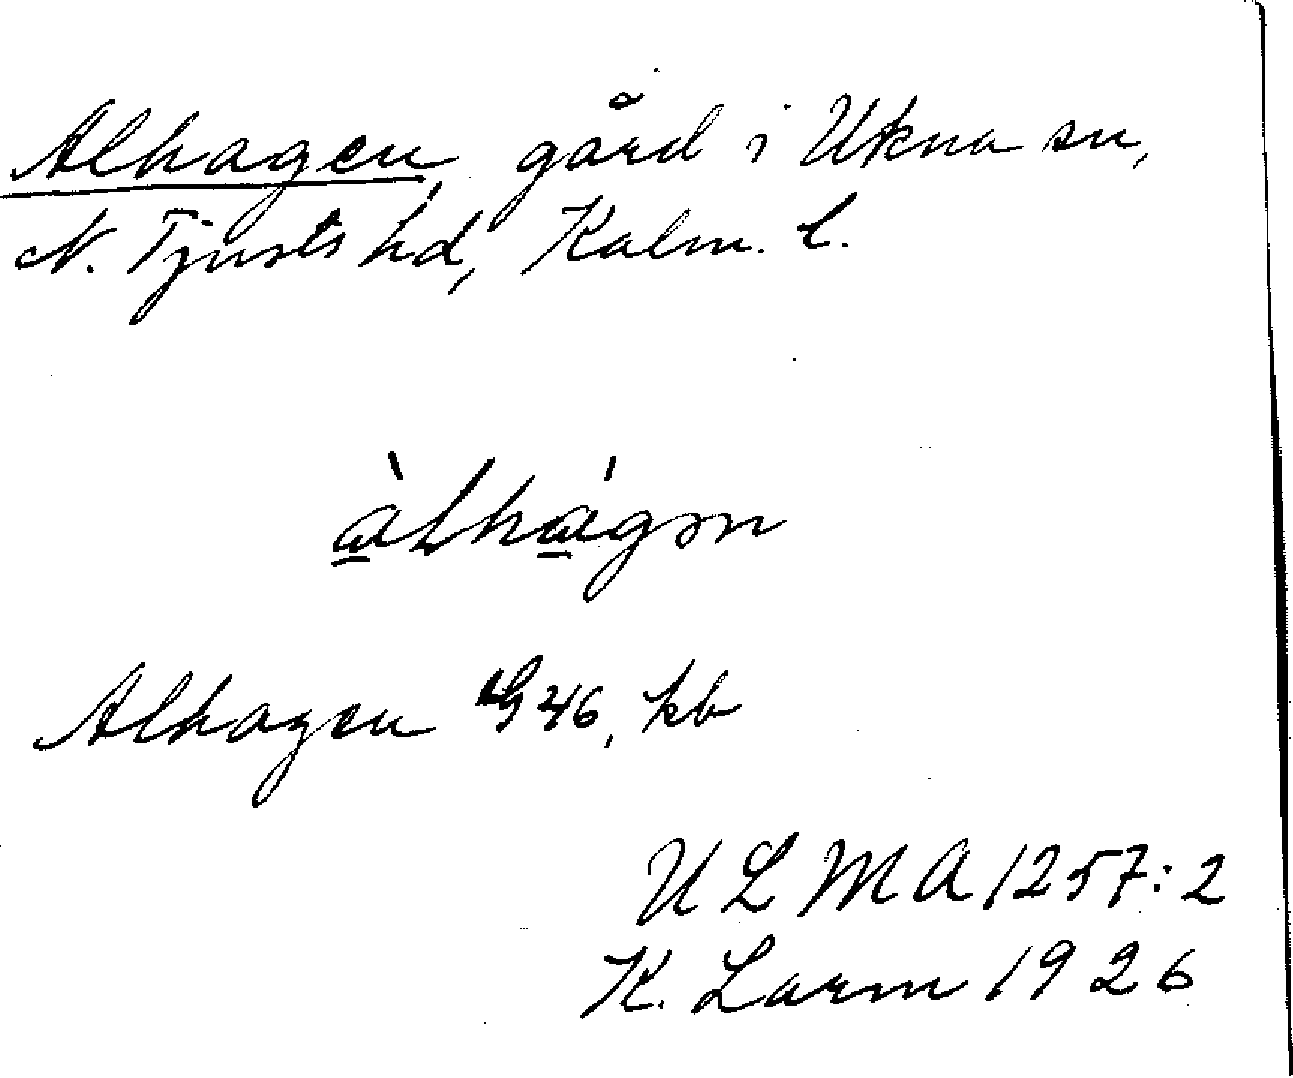 Alhagen, gård i Ukna sn,
N. Tjusts hd, Kalm. l.
àlhágən
Alhagen 1946, kb
ULMA 1257:2
K. Larm 1926